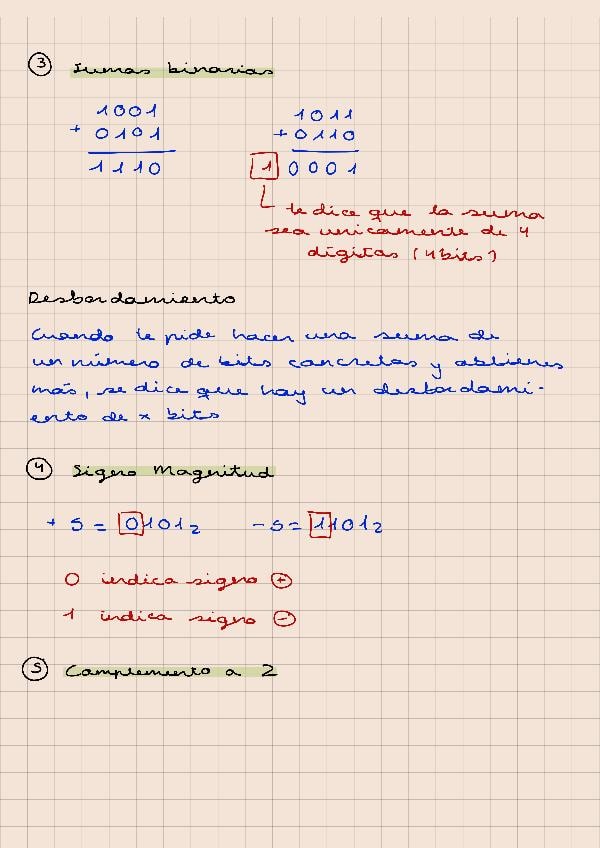 3 Sumas binarias
1001
+ 0101
1110
1011
+ 0110
1 0001
te dice que la suma
sea unicamente de 4
digitos (4 bits)
Desbordamiento
Cuando te pide hacer una suma de
un número de bits concretos y obtienes
más, se dice que hay un desbordami-
ento de x bits
4 Signo Magnitud
+ 5 = 0101₂ - 5 = 1101₂
0 indica signo +
1 indica signo -
5 Complemento a 2